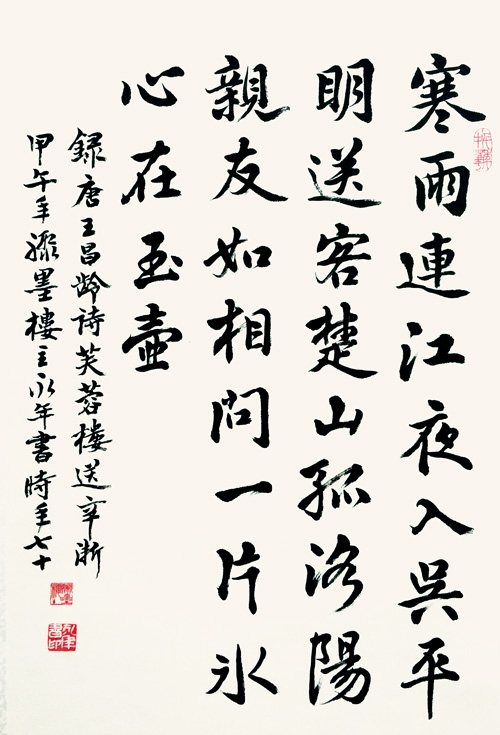 寒雨連江夜入吳平
明送客楚山孤洛陽
親友如相問一片冰
心在玉壺
録唐王昌龄诗芙蓉楼送辛渐
甲午年 墨樓主永年書時年七十